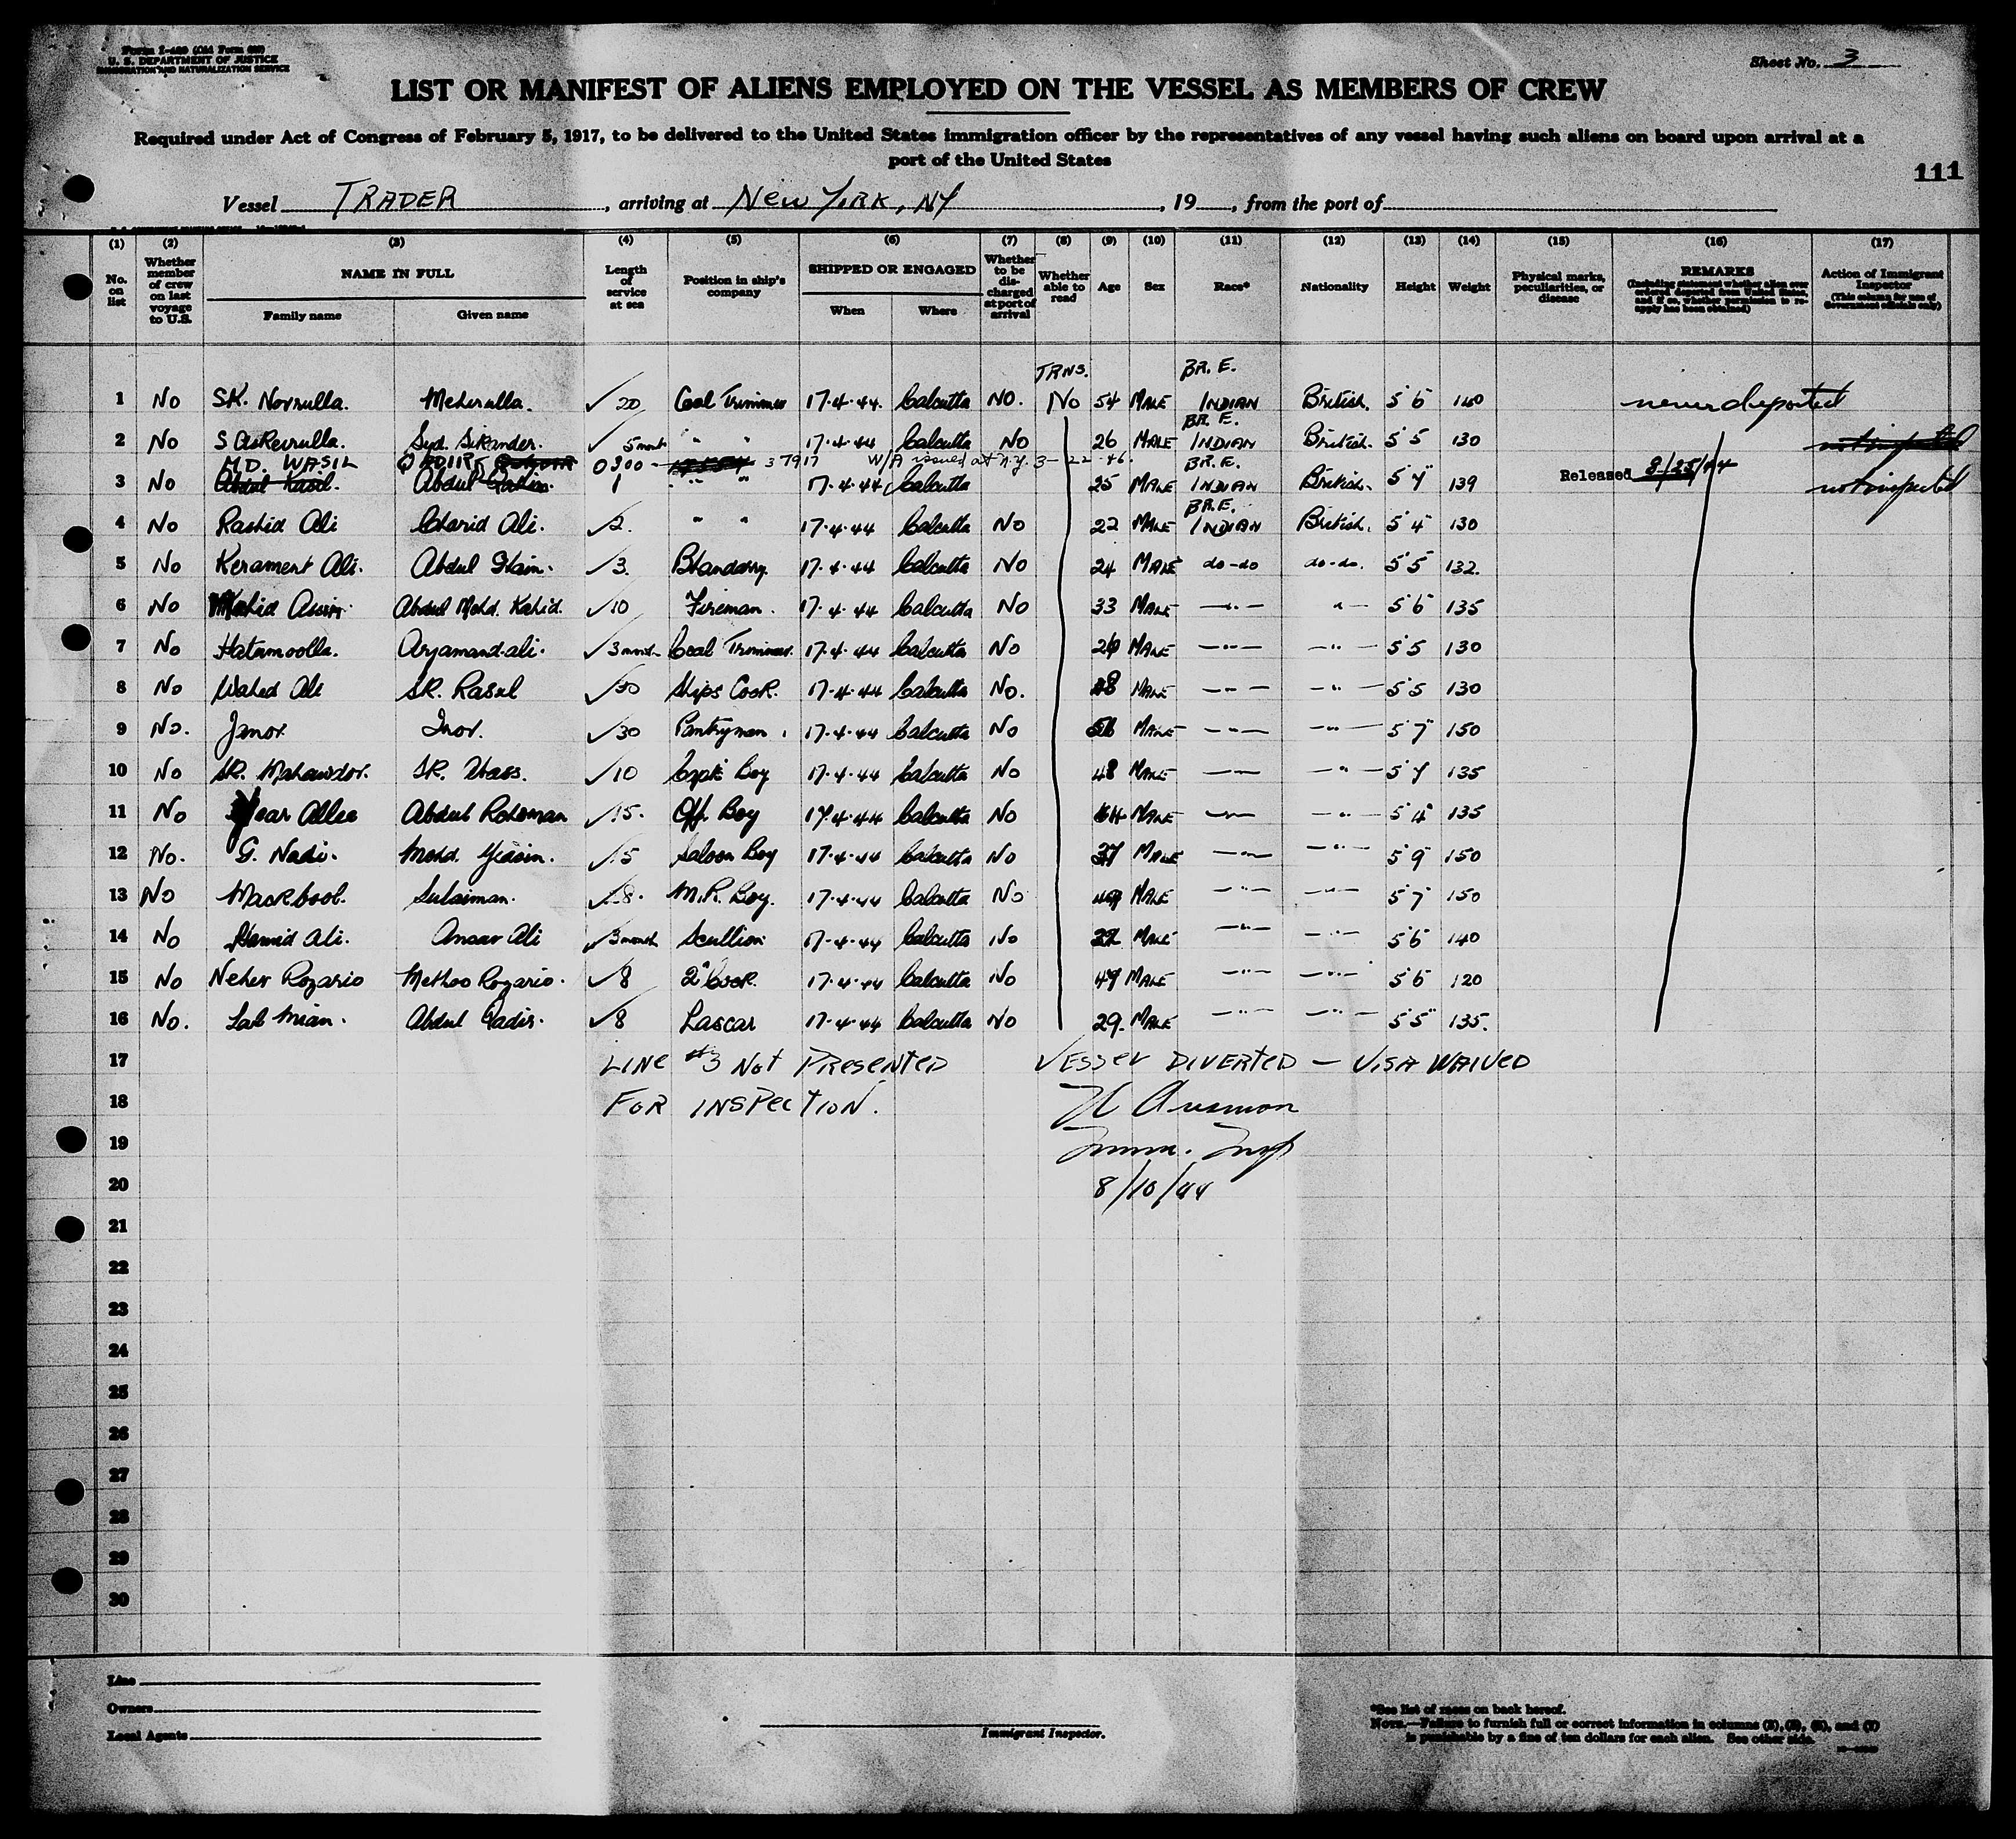 Form I-480 (Old Form 689)
U. S. DEPARTMENT OF JUSTICE
IMMIGRATION AND NATURALIZATION SERVICE
Sheet No. 3
LIST OR MANIFEST OF ALIENS EMPLOYED ON THE VESSEL AS MEMBERS OF CREW
Required under Act of Congress of February 5, 1917, to be delivered to the United States immigration officer by the representatives of any vessel having such aliens on board upon arrival at a
port of the United States
111
Vessel TRADER, arriving at New York, NY, 19, from the port of
(1) (2) (3) (4) (5) (6) (7) (8) (9) (10) (11) (12) (13) (14) (15) (16) (17)
No. on list
Whether member of crew on last voyage to U.S.
NAME IN FULL
Family name Given name
Length of service at sea
Position in ship's company
SHIPPED OR ENGAGED
When Where
Whether to be discharged at port of arrival
Whether able to read
Age Sex Race* Nationality Height Weight
Physical marks, peculiarities, or disease
REMARKS
(Including statement whether alien ever ordered deported from United States, and if so, whether permission to reapply has been obtained)
Action of Immigrant Inspector
(This column for use of Government officials only)
TRNS. BR. E.
1 No SK. Novrulla. Meherulla. ✓ 20 Coal Trimmer 17.4.44. Calcutta NO. No 54 MALE INDIAN British. 5'6" 140 never deported
BR. E.
2 No Syd. Sikander. ✓ 5 mont " " 17.4.44 Calcutta No 26 MALE INDIAN British. 5'5" 130 not inspected
MD. WASIL 0300- 37917 W/A issued at N.Y. 3-22-46. BR. E.
3 No Abdul 1 " " 17.4.44 Calcutta 25 MALE INDIAN British. 5'4" 139 Released 8/25/44 not inspected
BR.E.
4 No Rashid Ali Charid Ali. ✓ 2. " " 17.4.44 Calcutta No 22 MALE INDIAN British. 5'4" 130
5 No Kerament Ali. Abdul ✓ 3. Bhandarry 17.4.44 Calcutta No 24 MALE do-do do-do. 5'5" 132.
6 No Abdul Mohd. Kahid. ✓ 10 Fireman. 17.4.44 Calcutta No 33 MALE —"— "— 5'6" 135
7 No Hatamoolla. Aryamand ali. ✓ 3 month Coal Trimmer. 17.4.44 Calcutta No MALE —"— —"— 5'5" 130
8 No Wahed Ali SK. Rasul ✓ 30 Ships Cook. 17.4.44 Calcutta No. 48 MALE —"— —"— 5'5" 130
9 No. Jenor. Inor. ✓ 30 Pantryman. 17.4.44 Calcutta No MALE —"— —"— 5'7" 150
10 No SK. SK. ✓ 10 Capt's Boy 17.4.44 Calcutta No 48 MALE —"— —"— 5'4" 135
11 No Year Allee Abdul Rohoman ✓ 15. Off. Boy 17.4.44 Calcutta No MALE —"— —"— 5'4" 135
12 No. G. Nadi. Mohd. Yeasin. ✓ 15 Saloon Boy 17.4.44 Calcutta No 37 MALE —"— —"— 5'9" 150
13 No Mackbool. Sulaiman. ✓ 8. M.R. Boy. 17.4.44 Calcutta No MALE —"— —"— 5'7" 150
14 No Hamid Ali. Ansar Ali ✓ 3 month Scullion 17.4.44 Calcutta No 22 MALE —"— —"— 5'6" 140
15 No Neher Rozario Methoo Rozario. ✓ 8 2" Cook. 17.4.44 Calcutta No 49 MALE —"— —"— 5'6" 120
16 No. Lal Mian. Abdul Qadir. ✓ 8 Lascar 17.4.44 Calcutta No 29. MALE —"— —"— 5'5" 135.
17 LINE #3 Not PRESENTED VESSEL DIVERTED — VISA WAIVED
18 FOR INSPECTION.
19 Imm. Insp
20 8/10/44
21
22
23
24
25
26
27
28
29
30
Line
Owners
Local Agents
Immigrant Inspector.
*See list of races on back hereof.
NOTE.—Failure to furnish full or correct information in columns (3), (5), (6), and (7)
is punishable by a fine of ten dollars for each alien. See other side.